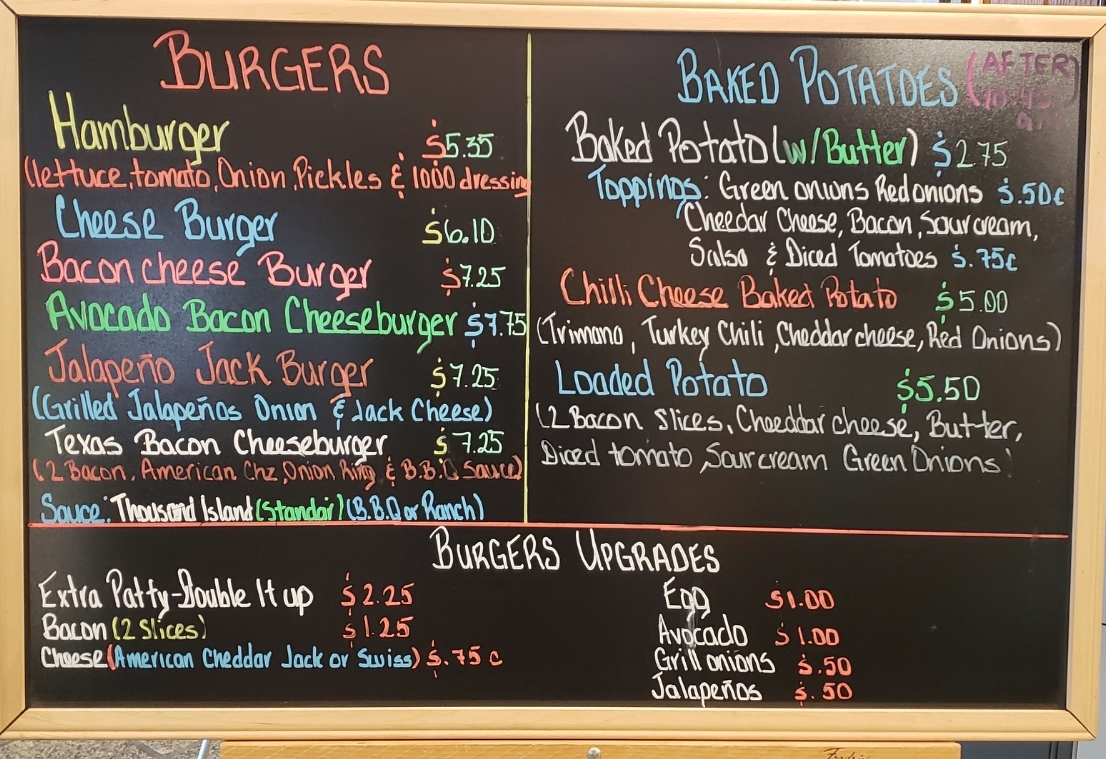 BURGERS
Hamburger $5.35
(lettuce, tomato, Onion, Pickles & 1000 dressing
Cheese Burger $6.10
Bacon cheese Burger $7.25
Avocado Bacon Cheeseburger $7.75
Jalapeño Jack Burger $7.25
(Grilled Jalapeños Onion & Jack Cheese)
Texas Bacon Cheeseburger $7.25
(2 Bacon, American Chz, Onion Ring & B.B.Q Sauce)
Sauce: Thousand Island (Standar) (B.B.Q or Ranch)
BAKED POTATOES (AFTER
Baked Potato (w/Butter) $2.75
Toppings: Green onions Red onions $.50¢
Cheedar Cheese, Bacon, Sour cream,
Salsa & Diced Tomatoes $.75¢
Chilli Cheese Baked Potato $5.00
(Trimano, Turkey Chili, Cheddar cheese, Red Onions)
Loaded Potato $5.50
(2 Bacon Slices, Cheeddar cheese, Butter,
Diced tomato, Sour cream Green Onions)
BURGERS UPGRADES
Extra Patty-Double It up $2.25
Bacon (2 Slices) $1.25
Cheese (American Cheddar Jack or Swiss) $.75 c
Egg $1.00
Avocado $1.00
Grill onions $.50
Jalapeños $.50